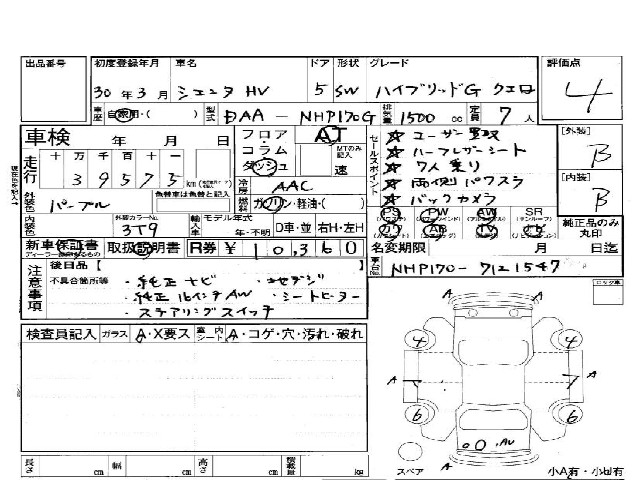 出品番号 初度登録年月 車名 ドア 形状 グレード 評価点
30年3月 シエンタ HV 5 SW ハイブリッドG クエロ 4
車歴 自家用・( ) 型式 DAA-NHP170G 排気量 1500 cc 定員 7 人
車検 年 月 日 フロア コラム ダッシュ AT MTのみ記入 速
走行 十 万 千 百 十 一
39575 km
冷房 AAC
外装色 パープル 色替車は色替と記入 燃料 ガソリン・軽油・( )
内装色 外装カラーNo. 3T9 輸入車 モデル年式 年・不明 D車・並 右H・左H
セールスポイント
☆ ユーザー買取
☆ ハーフレザーシート
☆ 7人乗り
☆ 両側パワスラ
☆ バックカメラ
PS PW AW SR
カワ AB TV ナビ
[外装] B
[内装] B
純正品のみ丸印
新車保証書 取扱説明書 R券 ¥10,360 名変期限 月 日迄
ディーラー記録のあるもの
車台No. NHP170-7121547
注意事項
後日品【 】
不具合箇所等
・純正ナビ
・純正16インチAW ・シートヒーター
・ステアリングスイッチ
検査員記入 ガラス A・X要ス 室内シート A・コゲ・穴・汚れ・破れ
ロック車
A
4 4
A A
7
6 6
A A
スペア
小A有・小凹有
長さ cm 幅 cm 高さ cm 積載量 kg